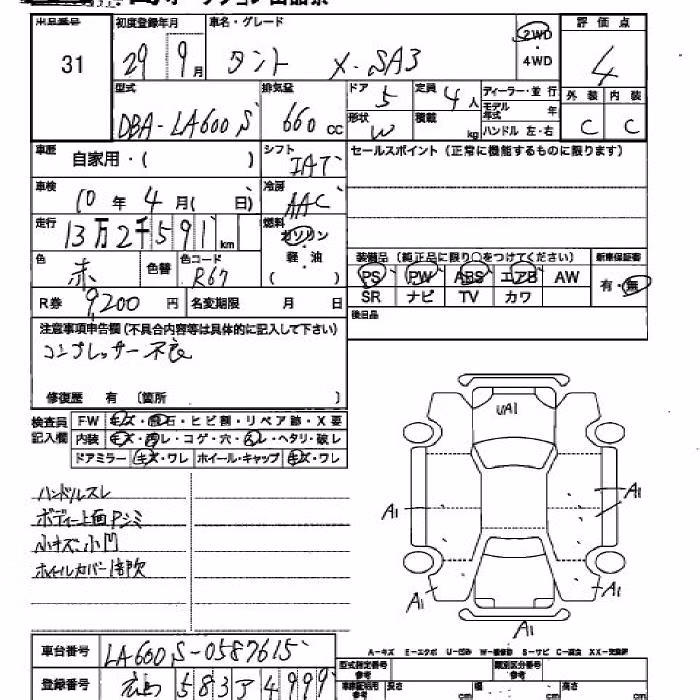 出品番号 初度登録年月 車名・グレード 2WD 評価点
31 29 9月 タント X-SA3 ・ 4
4WD
型式 排気量 ドア 5 定員 4人 ディーラー・並行 外装 内装
DBA-LA600S 660cc 形状 W 積載 kg モデル年式 年 C C
ハンドル 左・右
車歴 自家用・( ) シフト IAT セールスポイント(正常に機能するものに限ります)
車検 10年4月( 日) 冷房 AAC
走行 13万2千591km 燃料 ガソリン
・
軽・油
( )
色 赤 色替 色コード R67 装備品〔純正品に限り○をつけてください〕 新車保証書
PS PW ABS エアB AW 有・無
R券 9,200円 名変期限 月 日 SR ナビ TV カワ
後日品
注意事項申告欄(不具合内容等は具体的に記入して下さい)
コンプレッサー不良
修復歴 有 〔箇所 〕
検査員 FW キズ・飛石・ヒビ割・リペア跡・X要
記入欄 内装 キズ・レ・コゲ・穴・レ・ヘタリ・破レ
ドアミラー キズ・ワレ ホイール・キャップ キズ・ワレ
UA1
ハンドルスレ
ボディー上面Pシミ
小キズ、小凹
ホイルカバー1部欠
A1 A1
A1 A1
A1
A-キズ E-エクボ U-凹み W-補修跡 S-サビ C-腐食 XX-交換済
車台番号 LA600S-0587615
登録番号 583 4999
型式指定番号 参考 類別区分番号 参考
長さ cm 幅 cm 高さ cm